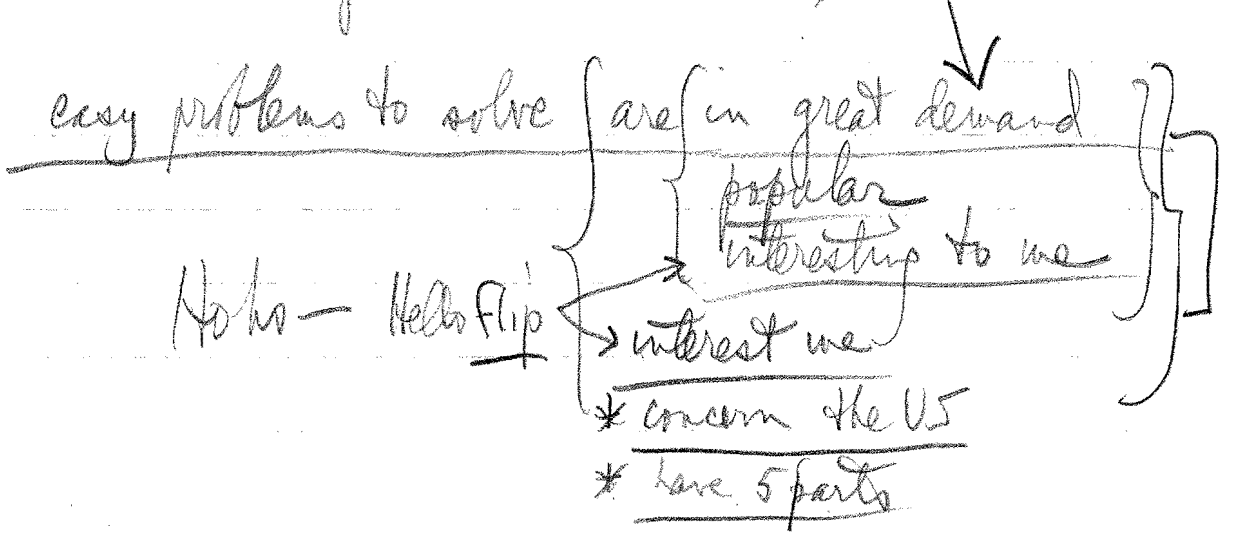 easy problems to solve are in great demand
popular
interesting to me
Ho ho — Hello Flip
interest me
* concern the US
* have 5 parts